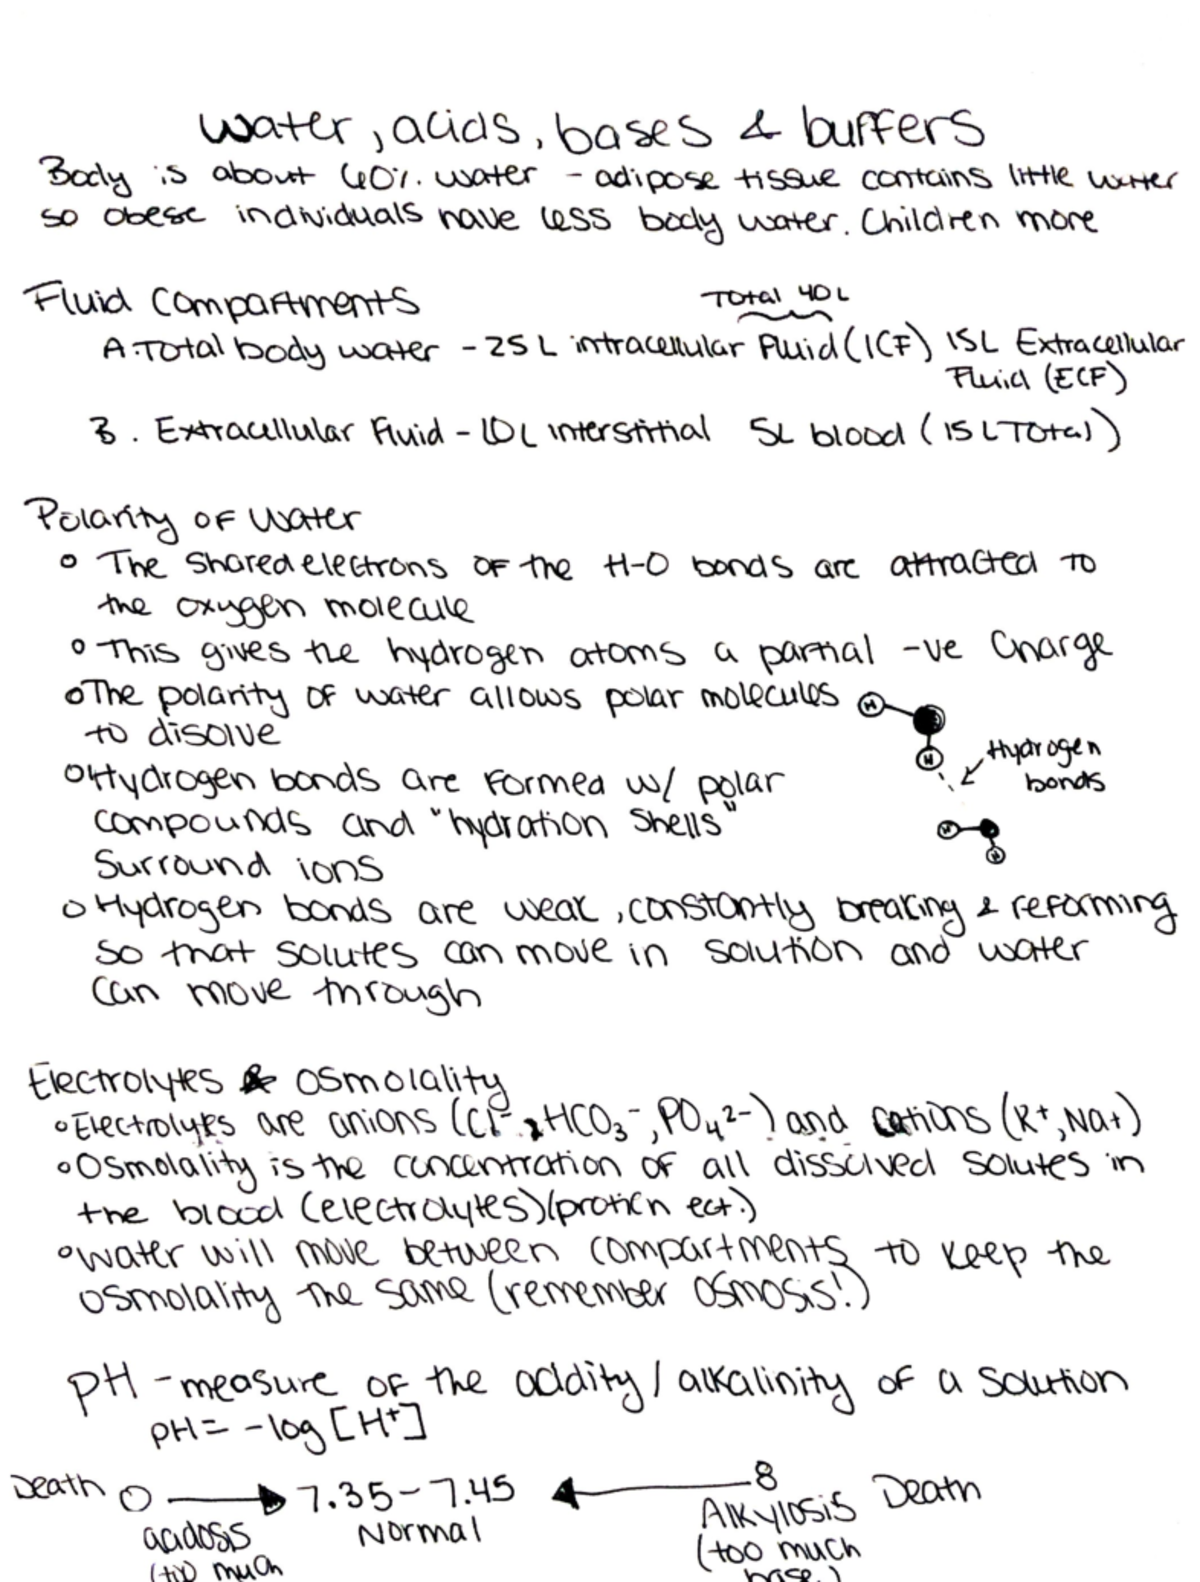 Water, acids, bases & buffers
Body is about 60%. water - adipose tissue contains little water
so obese individuals have less body water. Children more
Fluid Compartments
Total 40L
A. Total body water - 25 L intracellular Fluid (ICF) 15L Extracellular
Fluid (ECF)
B. Extracellular Fluid - 10L interstitial 5L blood (15L Total)
Polarity of Water
The Shared electrons of the H-O bonds are attracted to
the oxygen molecule
This gives the hydrogen atoms a partial -ve Charge
The polarity of water allows polar molecules
to disolve
H
H
Hydrogen
bonds
H
H
Hydrogen bonds are formed w/ polar
compounds and "hydration Shells"
Surround ions
Hydrogen bonds are weak, constantly breaking & reforming
so that solutes can move in solution and water
can move through
Electrolytes & Osmolality
Electrolytes are anions (Cl⁻, HCO₃⁻, PO₄²⁻) and cations (K⁺, Na⁺)
Osmolality is the concentration of all dissolved solutes in
the blood (electrolytes)(protien ect.)
Water will move between compartments to keep the
Osmolality the same (remember Osmosis!)
pH - measure of the acidity / alkalinity of a solution
pH = -log [H⁺]
Death 0 → 7.35 - 7.45 ← 8 Death
acidosis Normal Alkylosis
(too much (too much
base.)